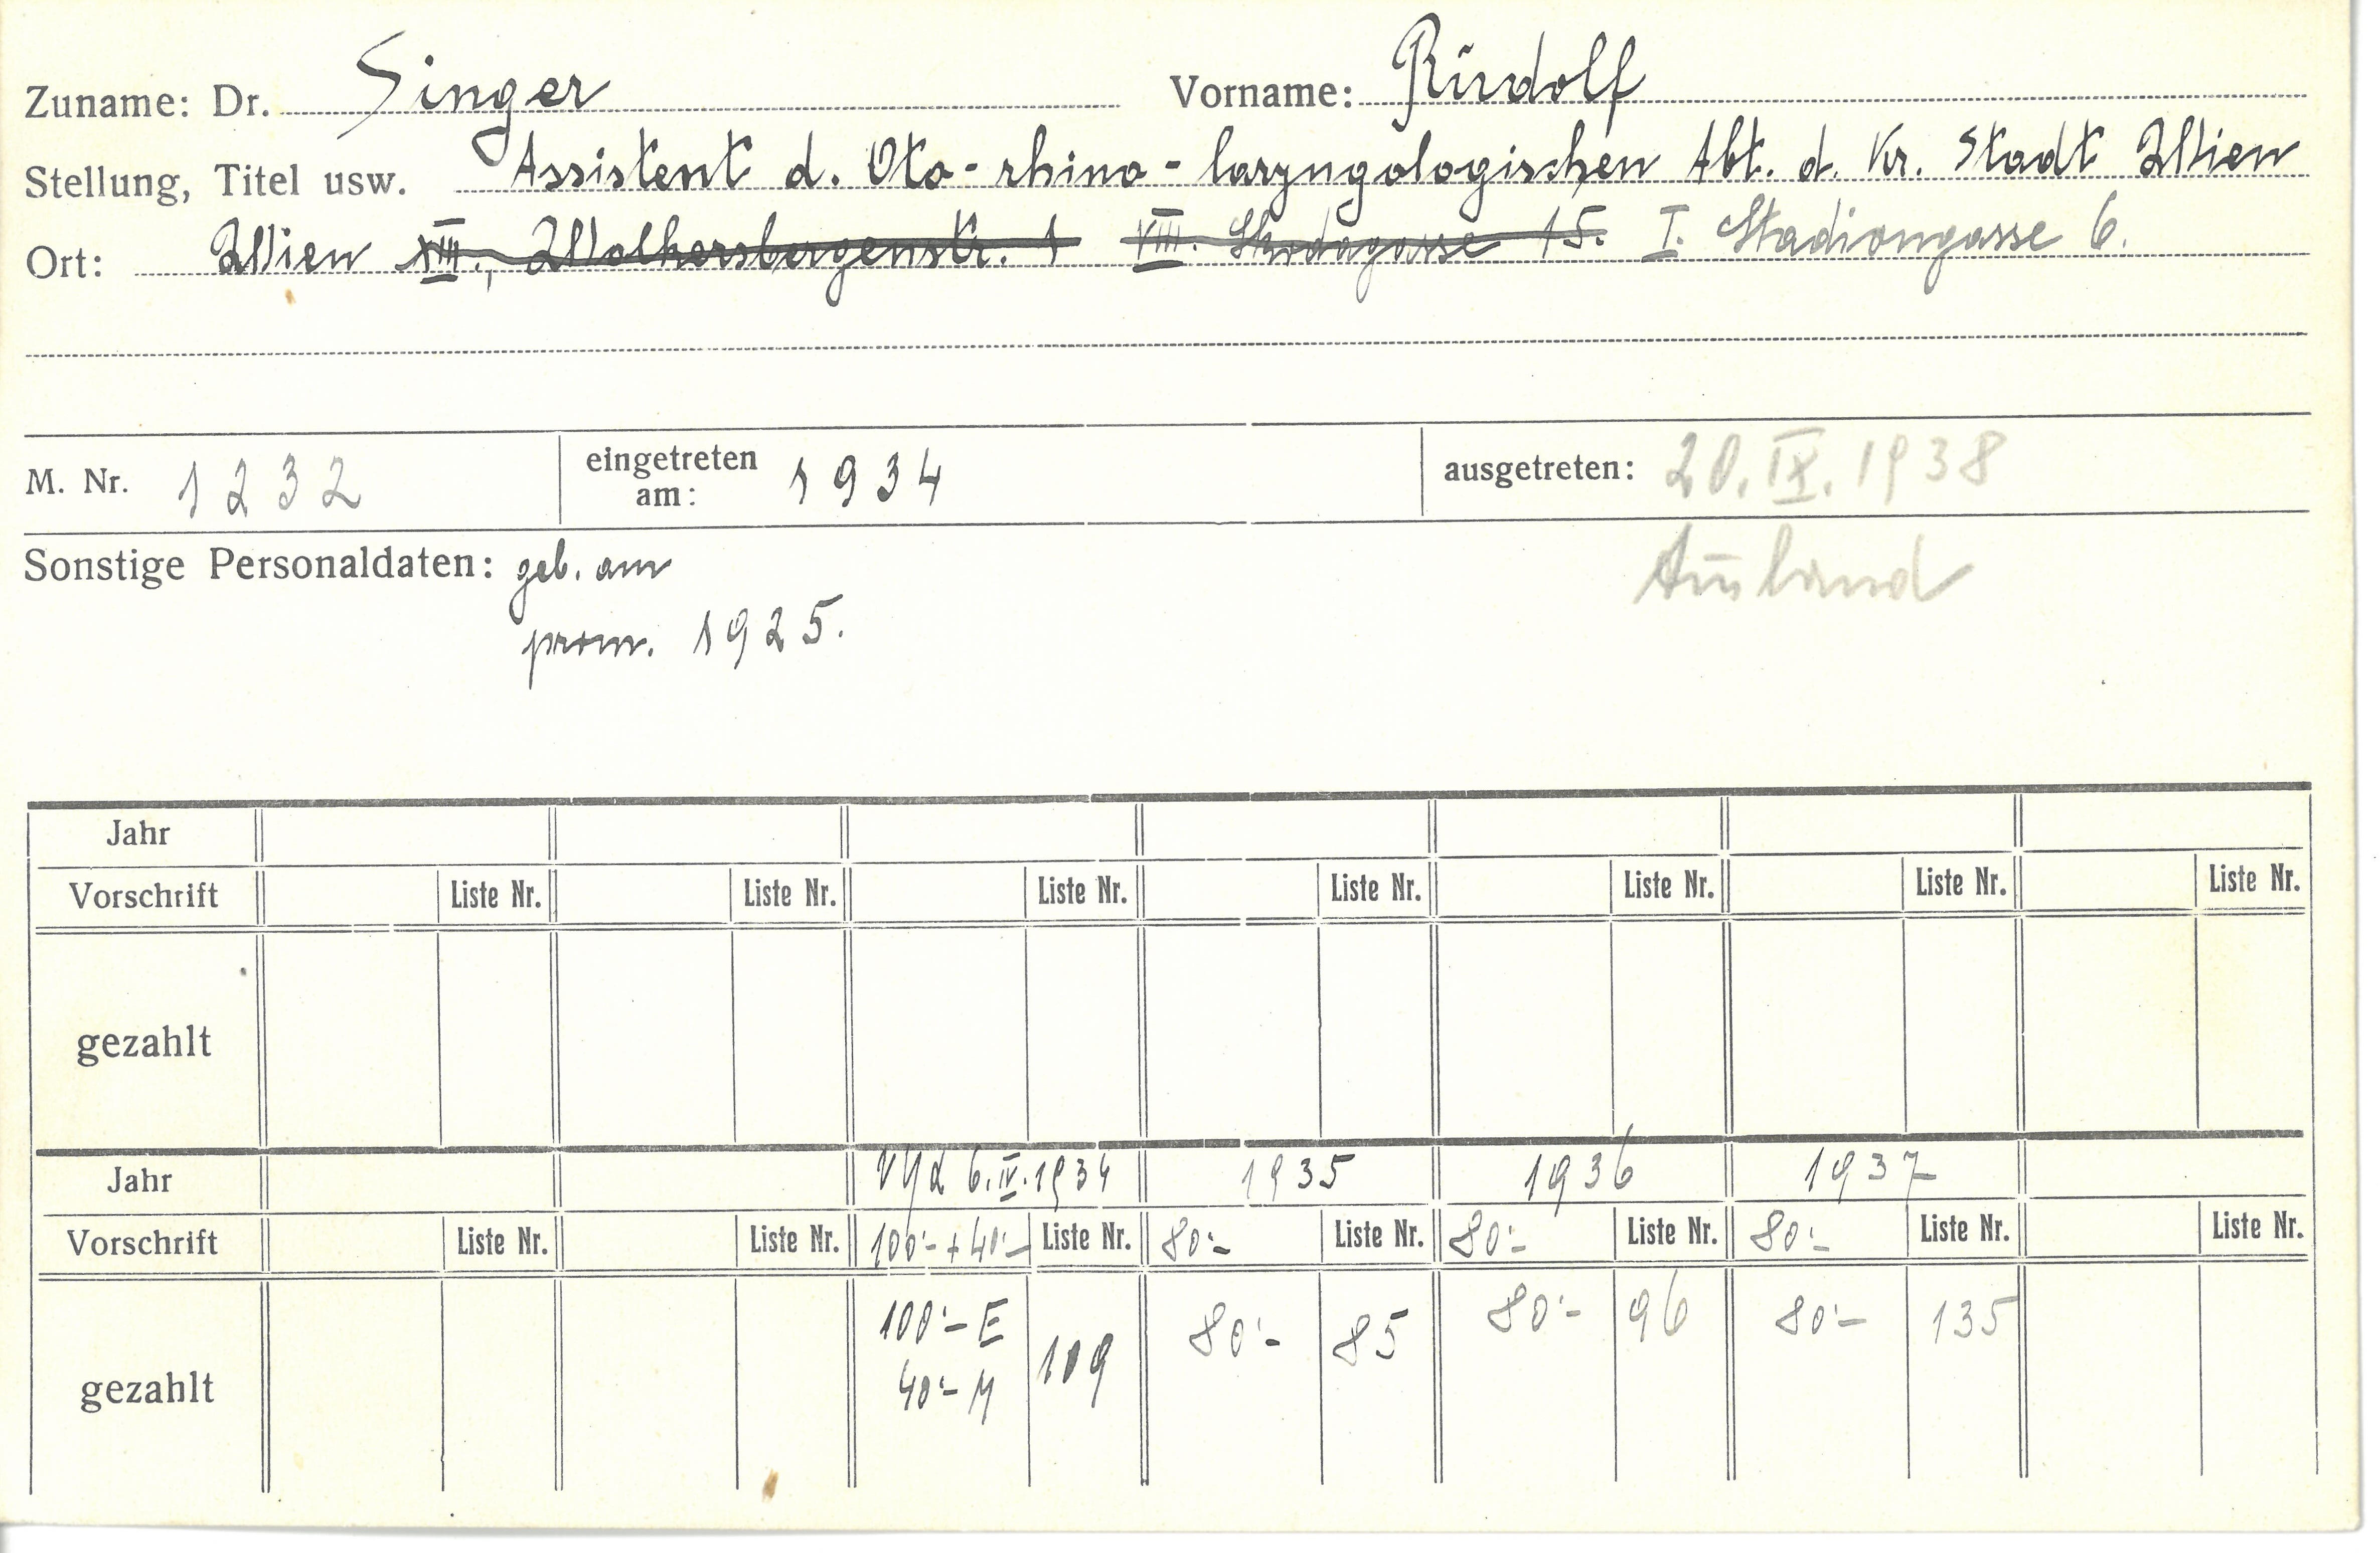 Zuname: Dr. Singer Vorname: Rudolf
Stellung, Titel usw. Assistent d. Oto-rhino-laryngologischen Abt. d. Kr. Stadt Wien
Ort: Wien XIII., Wolkersbergenstr. 1 VIII. Skodagasse 15. I. Stadiongasse 6.
M. Nr. 1232 eingetreten am: 1934 ausgetreten: 20. IX. 1938
Ausland
Sonstige Personaldaten: geb. am
prom. 1925.
Jahr
Vorschrift Liste Nr. Liste Nr. Liste Nr. Liste Nr. Liste Nr. Liste Nr. Liste Nr.
gezahlt
Jahr 6.IV.1934 1935 1936 1937
Vorschrift Liste Nr. Liste Nr. 100.- + 40.- Liste Nr. 80.- Liste Nr. 80.- Liste Nr. 80.- Liste Nr. Liste Nr.
gezahlt 100.- E 109 80.- 85 80.- 96 80.- 135
40.- M